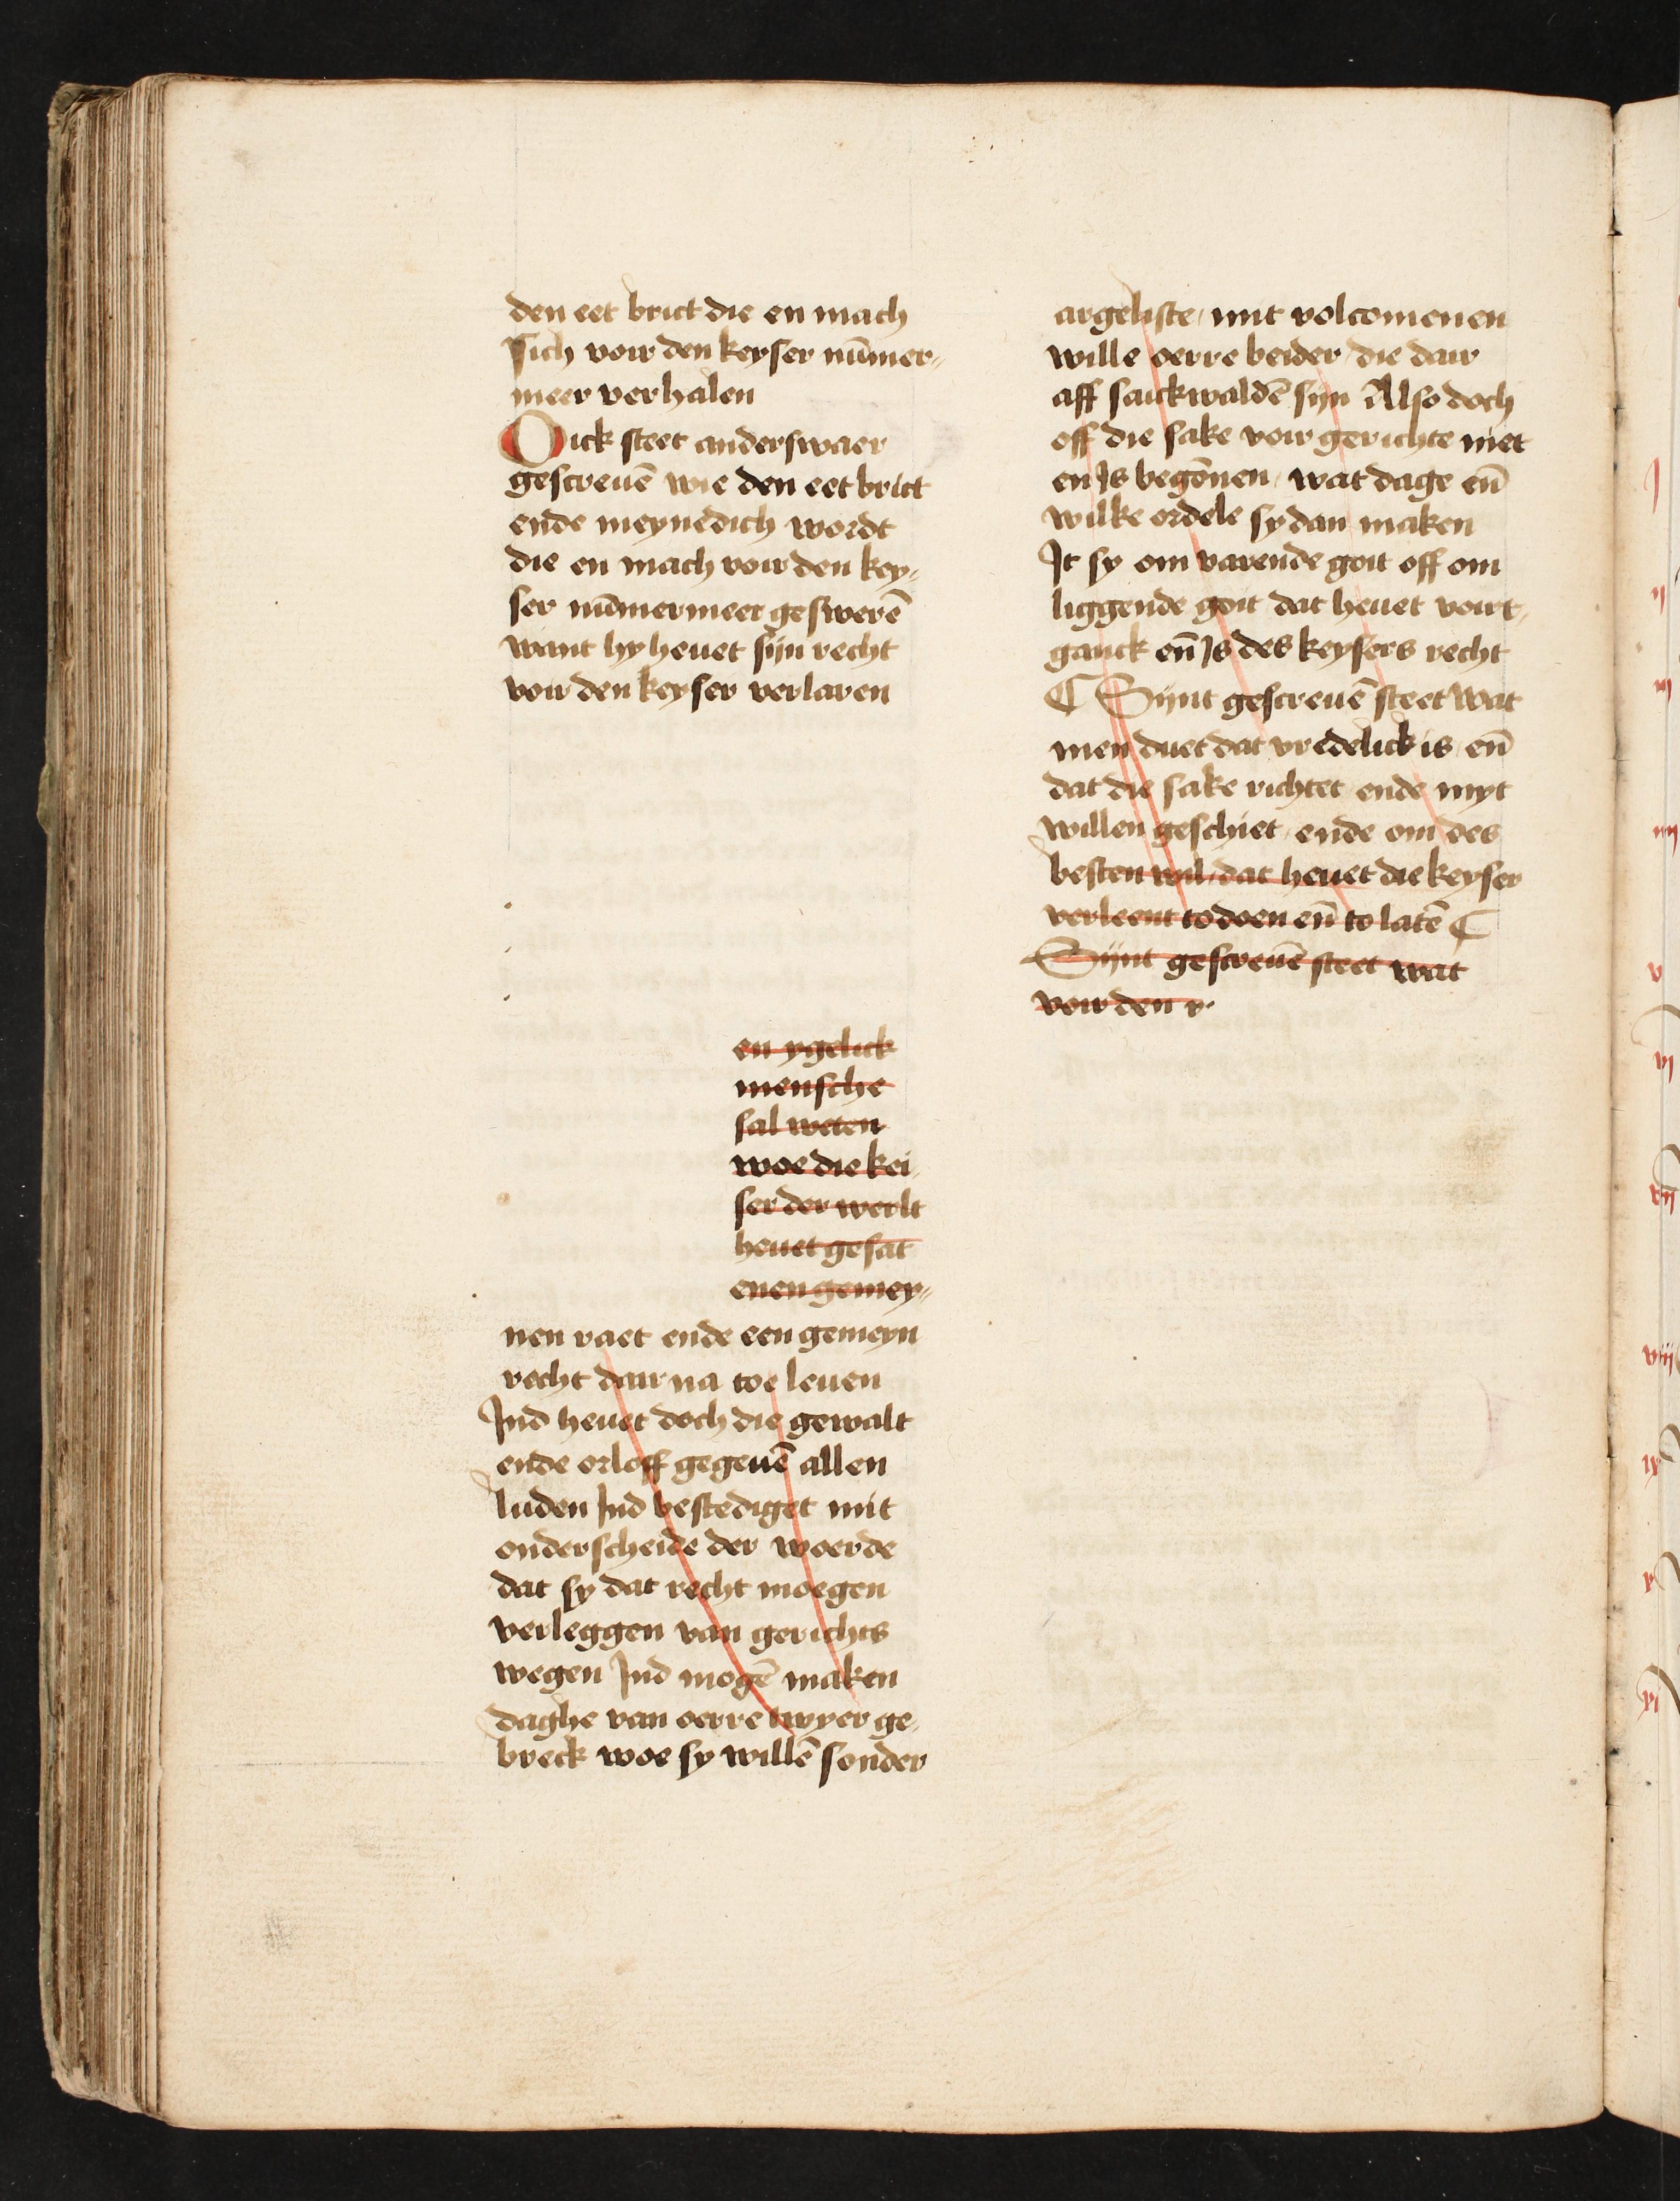 den eet brict die en mach
sich voir den keyser nūmer„
meer verhalen
Oick steet anderswaer
gescreuē wie den eet brict
ende meynedich wordt
die en mach voir den key„
ser nūmermeer geswerē
want hy heuet sijn recht
voir den keyser verlaren
en ygelick
mensche
sal weten
woe die kei„
ser der werlt
heuet gesat
enen gemey„
nen raet ende een gemeyn
recht dair na toe leuen
Ind heuet doch die gewalt
ende orloff gegeuē allen
luden Ind bestediget mit
onderscheide der woerde
dat sy dat recht moegen
verleggen van gerichts
wegen Ind mogē maken
daghe van oerre twyer ge„
breck woe sy willē sonder
argeliste / mit volcomenen
wille oerre beider / die dair
aff saickwaldē sijn Also doch
off die sake voir gerichte niet
en Is begōnen / wat dage eñ
wilke ordele sy dan maken
It sy om varende goit off om
liggende goit dat heuet voirt„
ganck eñ Is des keysers recht
¶ Sijnt gescreuē steet wat
men duet dat vredelick is / eñ
dat die sake richtet ende myt
willen geschiet / ende om des
besten wil / dat heuet die keyser
verleent to doen eñ to latē ¶
Sijnt gescreuē steet wat
voir den r·
I
ij
iij
iiij
v
vi
vij
viij
ix
x
xi